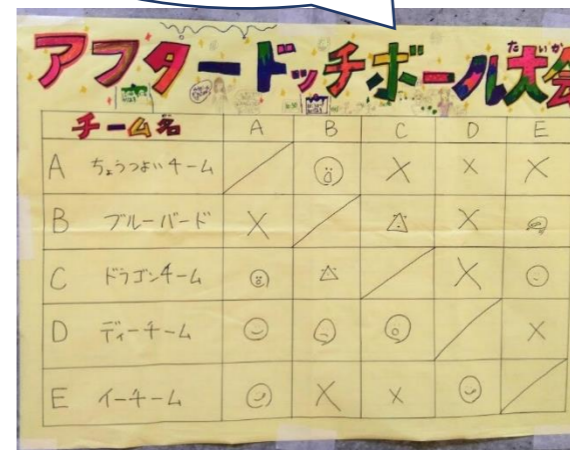 アフタードッチボール大会
たいか
チーム名 A B C D E
A ちょうつよいチーム X X X
B ブルーバード X X
C ドラゴンチーム X
D ディーチーム X
E イーチーム X X